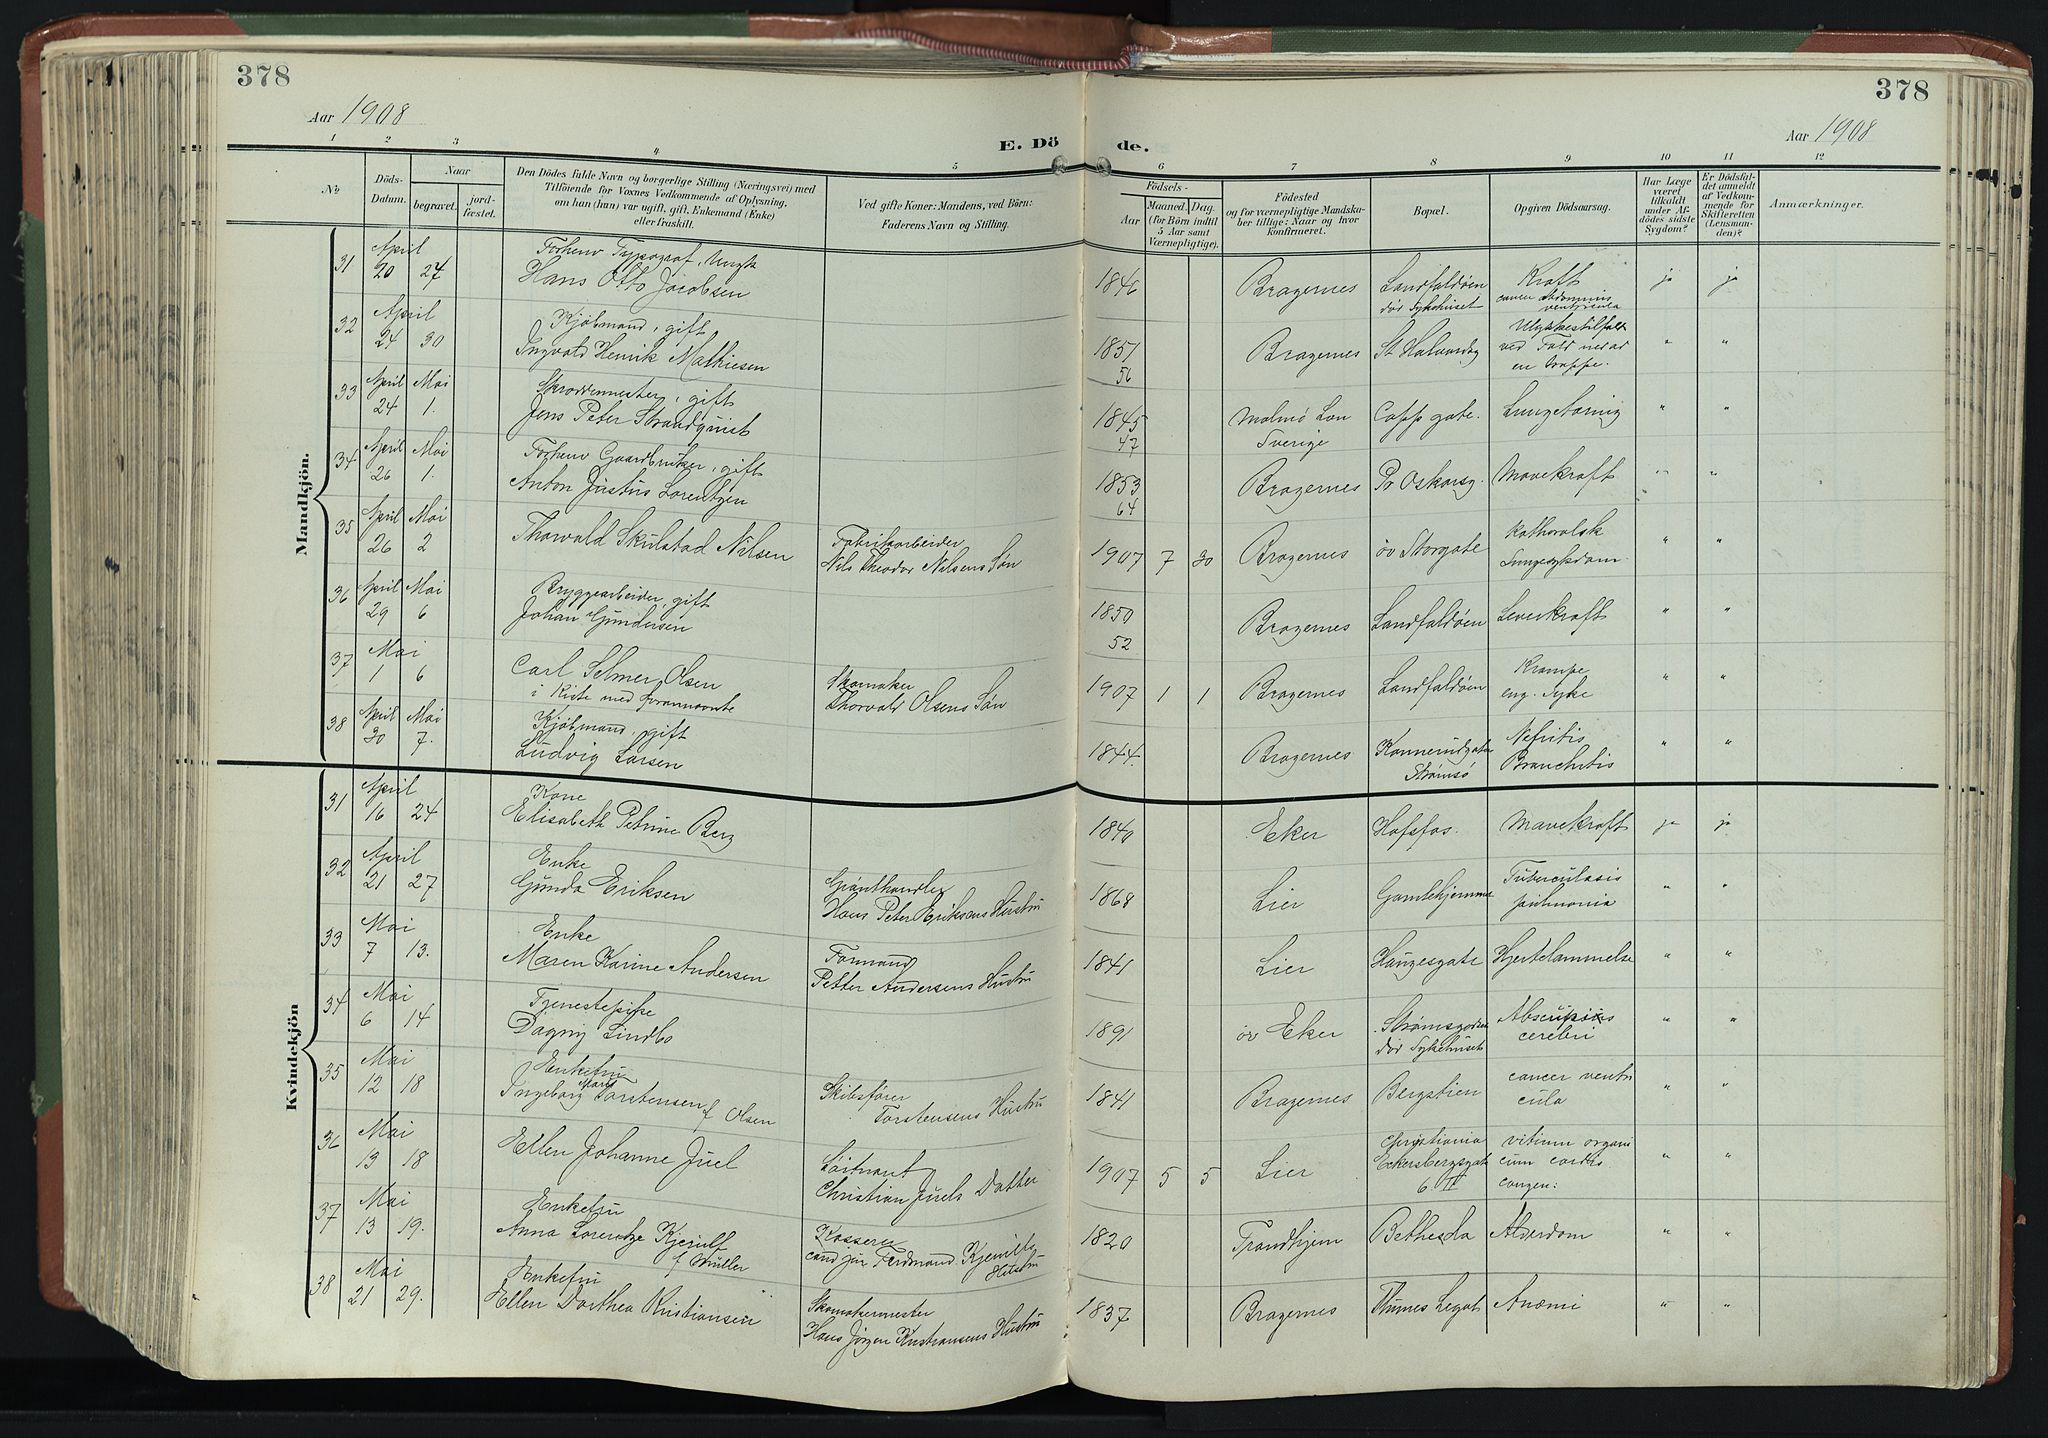 378
378
Aar 1908
Aar 1908
E. Dö de.
1 2 3 4 5 6 7 8 9 10 11 12
No
Döds-
Datum.
Naar
begravet.
jord-
fæstet.
Den Dödes fulde Navn og borgerlige Stilling (Næringsvei) med
Tilföiende for Voxnes Vedkommende af Oplysning,
om han (hun) var ugift, gift, Enkemand (Enke)
eller fraskilt.
Ved gifte Koner: Mandens, ved Börn:
Faderens Navn og Stilling.
Födsels-
Aar
Maaned. Dag.
(for Börn indtil
5 Aar samt
Værnepligtige).
Födested
og for værnepligtige Mandska-
ber tillige: Naar og hvor
konfirmeret.
Bopæl.
Opgiven Dödsaarsag.
Har Læge
været
tilkaldt
under Af-
dödes sidste
Sygdom?
Er Dödsfal-
det anmeldt
af Vedkom-
mende for
Skifteretten
(Lensman-
den)?
Anmærkninger.
Mandkjön.
31 April 20 27
Forhenv Typograf, Ungk
Hans Otto Jacobsen
1846 Bragernes Landfaldöen
död Sykehuset
Kraft
ja ja
32 April 24 30
Kjöbmand, gift
Ingvald Henrik Mathiesen
1851
56
Bragernes St Halvardsg
Ulykkestilfald
ved Fald ned ad
en trappe.
" "
33 April 24 Mai 1.
Skræddermester, gift
Jens Peter Strandquist
1845
47
Malmö Län
Sverige
Capp gate. Lungetæring " "
34 April 26 Mai 1.
Forhenv Gaardbruker, gift
Anton Justus Lorentzen
1853
64
Bragernes Pr Oskarsg. Mavekræft " "
35 April 26 Mai 2
Thorvald Skulstad Nilsen
Fabrikarbeider
Nils Theodor Nilsens Sön
1907 7 30 Bragernes öv Storgate
Katharalsk
Lungesykdom
" "
36 April 29 Mai 6
Bryggearbeider, gift
Johan Gundersen
1850
52
Bragernes Landfaldöen Leverkræft " "
37 Mai 1 6
Carl Selmer Olsen
i Kiste med forannævnte
Skomaker
Thorvald Olsens Sön
1907 1 1 Bragernes Landfaldöen
Krampe
eng. Syke
" "
38 April 30 Mai 7.
Kjöbmand, gift
Ludvig Larsen
1844. Bragernes Konnerudgate
Strömsö
Nefritis
Bronchitis
" "
Kvindekjön
31 April 16 24
Kone
Elisabeth Petrine Berg
1840 Eker Hofsfos. Mavekræft ja ja
32 April 21 27
Enke
Gunda Eriksen
Grönthandler
Hans Peter Eriksens Hustru
1868 Lier Gamlehjemmet
Tuberculosis
pulmonia
" "
33 Mai 7 13.
Enke
Maren Karine Andersen
Formand
Petter Andersens Hustru
1841 Lier Haugesgate Hjertelammelse " "
34 Mai 6 14
Tjenestepike
Dagny Lindbo
1891 öv Eker
Strömsgodset
död Sykehuset
cerebri
" "
35 Mai 12 18
Enkefru
Ingeborg Marie Torstensen f Olsen
Skibsförer
Torstensens Hustru
1841 Bragernes Bergstien
cancer ventri
cula
" "
36 Mai 13 18
Ellen Johanne Juel
Löitnant
Christian Juels Datter
1907 5 5 Lier
Christiania
Eckersbergsgate
6 II
vitium organi
cum cordis
congen:
" "
37 Mai 13 19.
Enkefru
Anna Lorentze Kjerulf
f Müller
Kasserer
cand jur Ferdinand Kjerulfs
Hustru
1820 Trondhjem Bethesda Alderdom " "
38 Mai 21 29.
Enkefru
Ellen Dorthea Kristiansen
Skomakermester
Hans Jörgen Kristiansens Hustru
1837 Bragernes Thunes Legat Anæmi " "